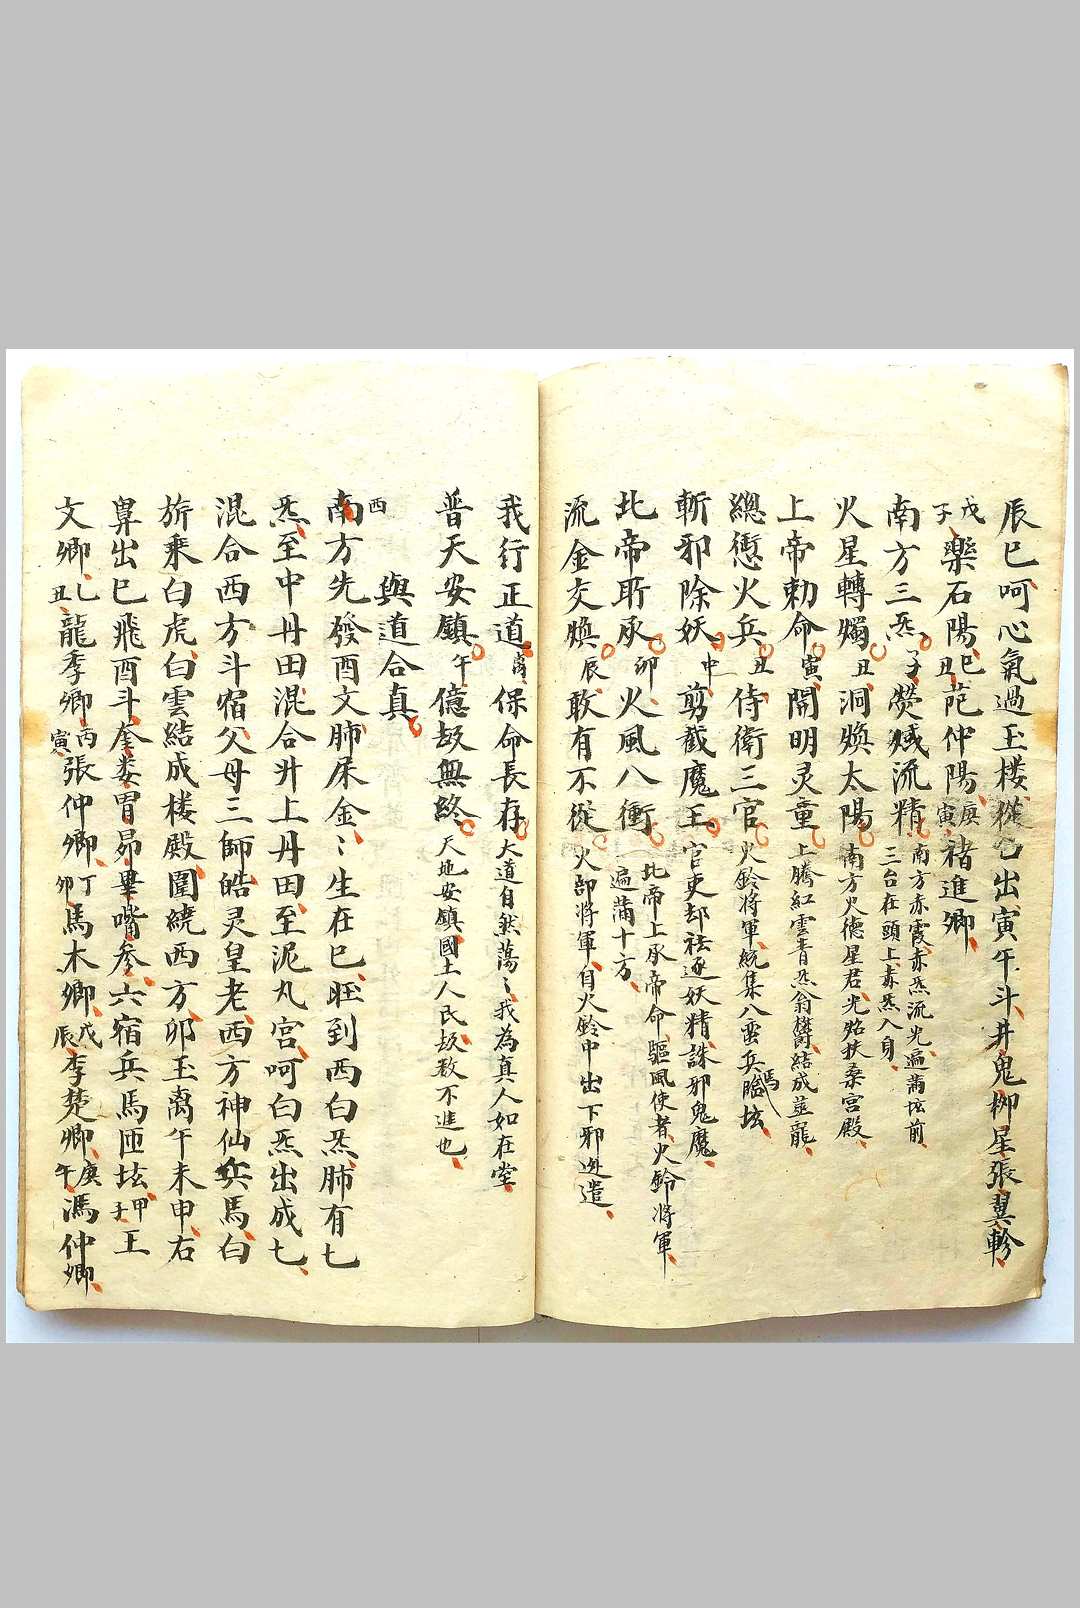 辰巳呵心氣過玉楼從口出寅午斗井鬼柳星張翼軫
戊子樂石陽己丑范仲陽庚寅褚進卿
南方三炁子熒惑流精南方赤霞赤炁流光遍蒲坛前三台在頭上赤炁入身
火星轉燭丑洞煥太陽南方火德星君光照扶桑宮殿
上帝勅命寅開明灵童上騰紅雲青炁翁欝結成蓝龍
總衙火兵丑侍衛三官火鈴將軍統集八蛮兵馬臨坛
斬邪除妖中剪截魔王官吏却祛逐妖精誅邪鬼魔
北帝所承卯火風八衝北帝上承帝命驅風使者火鈴將軍遍蒲十方
流金交煥辰敢有不從火部將軍自火鈴中出下邪迯遣
我行正道离保命長存大道自然蕩〻我為真人如在堂
普天安鎮午億劫無終天地安鎮國土人民劫数不進也
與道合真
西
南方先發酉文肺屎金〻生在巳旺到西白炁肺有七
炁至中丹田混合升上丹田至泥丸宮呵白炁出成七
混合西方斗宿父母三師皓灵皇老西方神仙兵馬白
旂乘白虎白雲結成楼殿圍繞西方卯玉离午未申右
鼻出巳飛酉斗奎娄胃昴畢嘴参六宿兵馬匝坛甲子王
文卿乙丑龍季卿丙寅張仲卿丁卯馬木卿戊辰李楚卿庚午馮仲卿